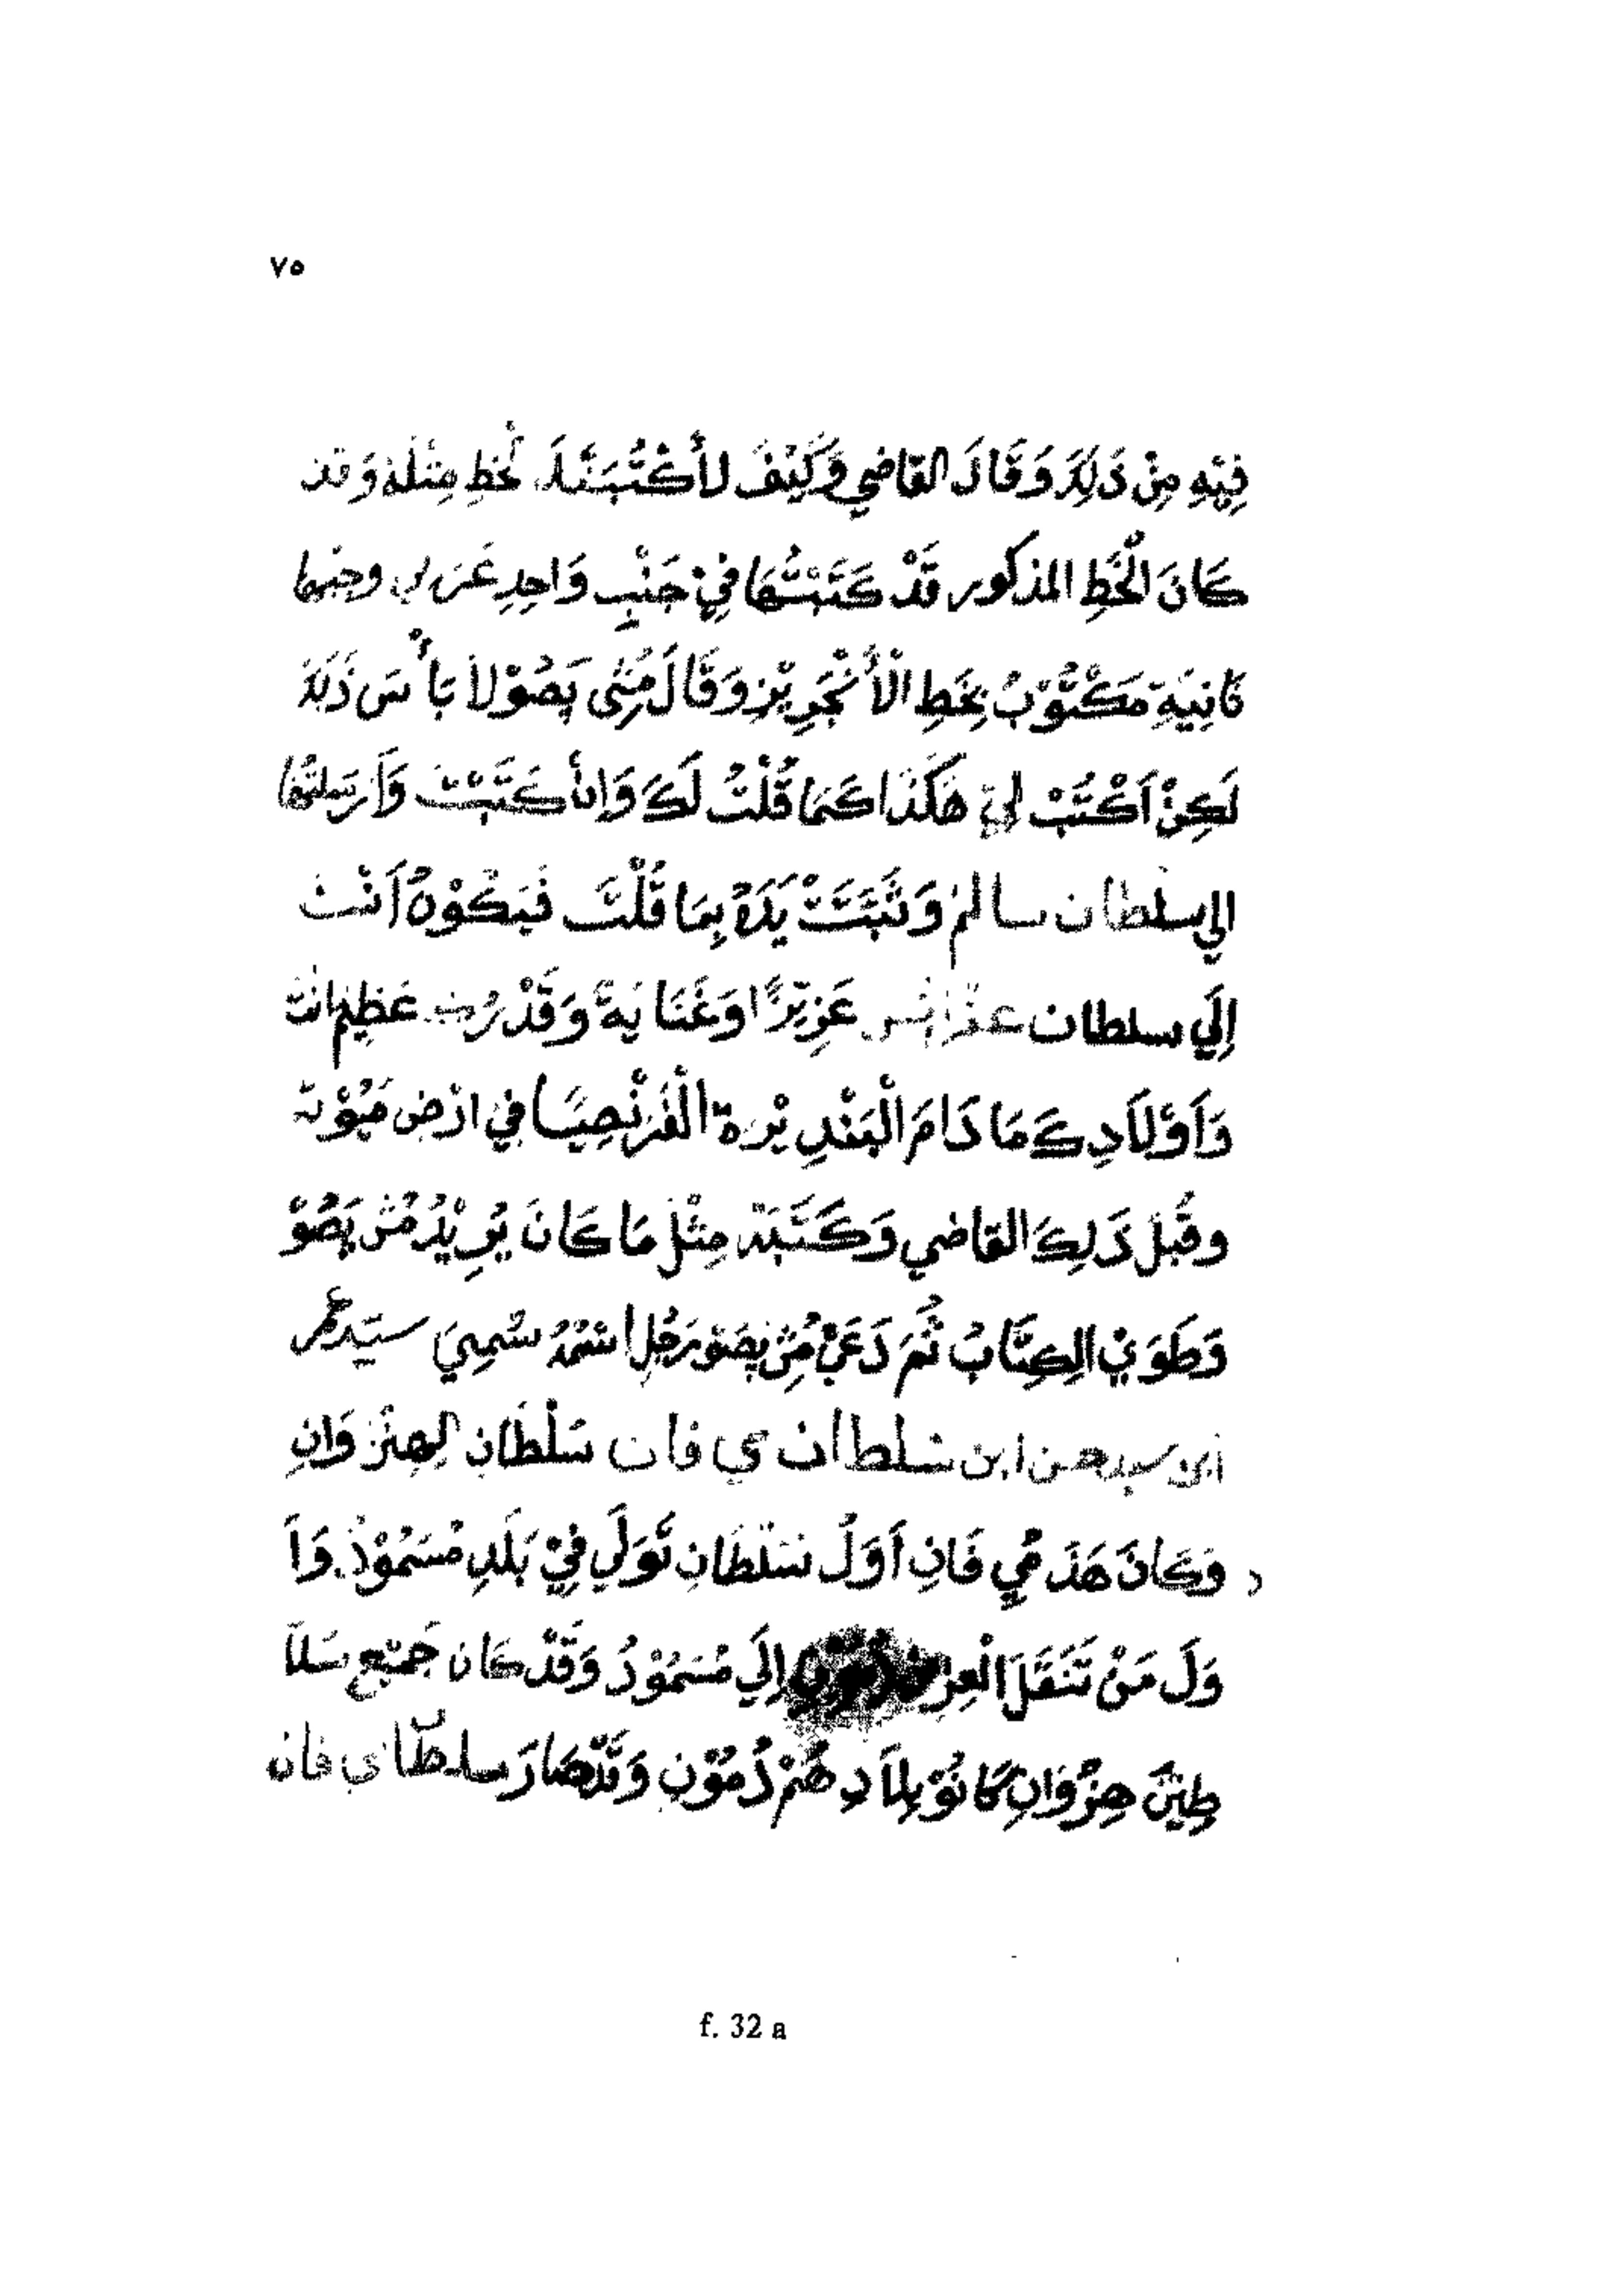 ٧٥
فِيْهِ مِنْ ذَلِكَ وَقَالَ القاضي وَكَيْفَ لأَكْتُبَنَّلَكَ لْخَطِ مِثْلَهُ وَقد
كَانَ الْخَطِ المذكور قَدْ كَتَبْتُهَا فِيْ جَنْبٍ وَاحِدِ عَرَبي وجنبها
ثَانِيَةِ مَكْتُوْبُ بِخَطِ الْأَنْجَرِيْزِ وَقَالَ مُثِى پَصُوْ لاَ بَأْسَ ذَلِكَ
لَكِنْ اَكْتُبْ لِيْ هَكَذَا كَمَا قُلْتُ لَكَ وَاِنْ كَتَبْتَ وَاَرْسَلتها
الي سلطان سالم وَثَبَتَتْ يَدَهُ بِمَا قُلْتَ فَيَكُوْنُ اَنْتَ
اِلَي سلطان عزيزًا وَغَنَايَةً وَقَدْرُتَ عَظِيْم انت
وَاَوْلاَدِكَ مَا دَامَ الْبَنْدِيْرَة الْفَرَنْصِيَا في ارْضِ مَيُوْتَة
وقَبْلَ ذَلِكَ القاضي وَكَتَبَهُ مِثْلَ مَا كَانَ يُرِيْدُ مُثِ پَصُوْ
وَطَوَيْ الِكِتَابُ ثُمَ دَعَيْ مُثِ پَصَوْ رَجُلِ اسْمُهُ سْمِيَ سيّد عمر
ابن سيد حسن ابن سلطاان مي فان سَلْطَانِ لِهِنْزَوَانِ
وَكَانَ هَذَ مَيِ فَانِ اَوَلُ سَلْطَانِ تَوَلَي فِيْ بَلَدِ مُسَمُوْدُ وَاَ
وَلَ مَنْ تَنَقَلَ الْعِزَ اِلَي مُسَمُوْدُ وَقَدْ كَان جَمْيْعِ سَلاَ
طِيْنَ هِنْزُوَانِ كَانُوْ بِلاَدِهُمْ دُمُوْنِ وَقَدْ صَارَ سلطان مي فان
f. 32 a